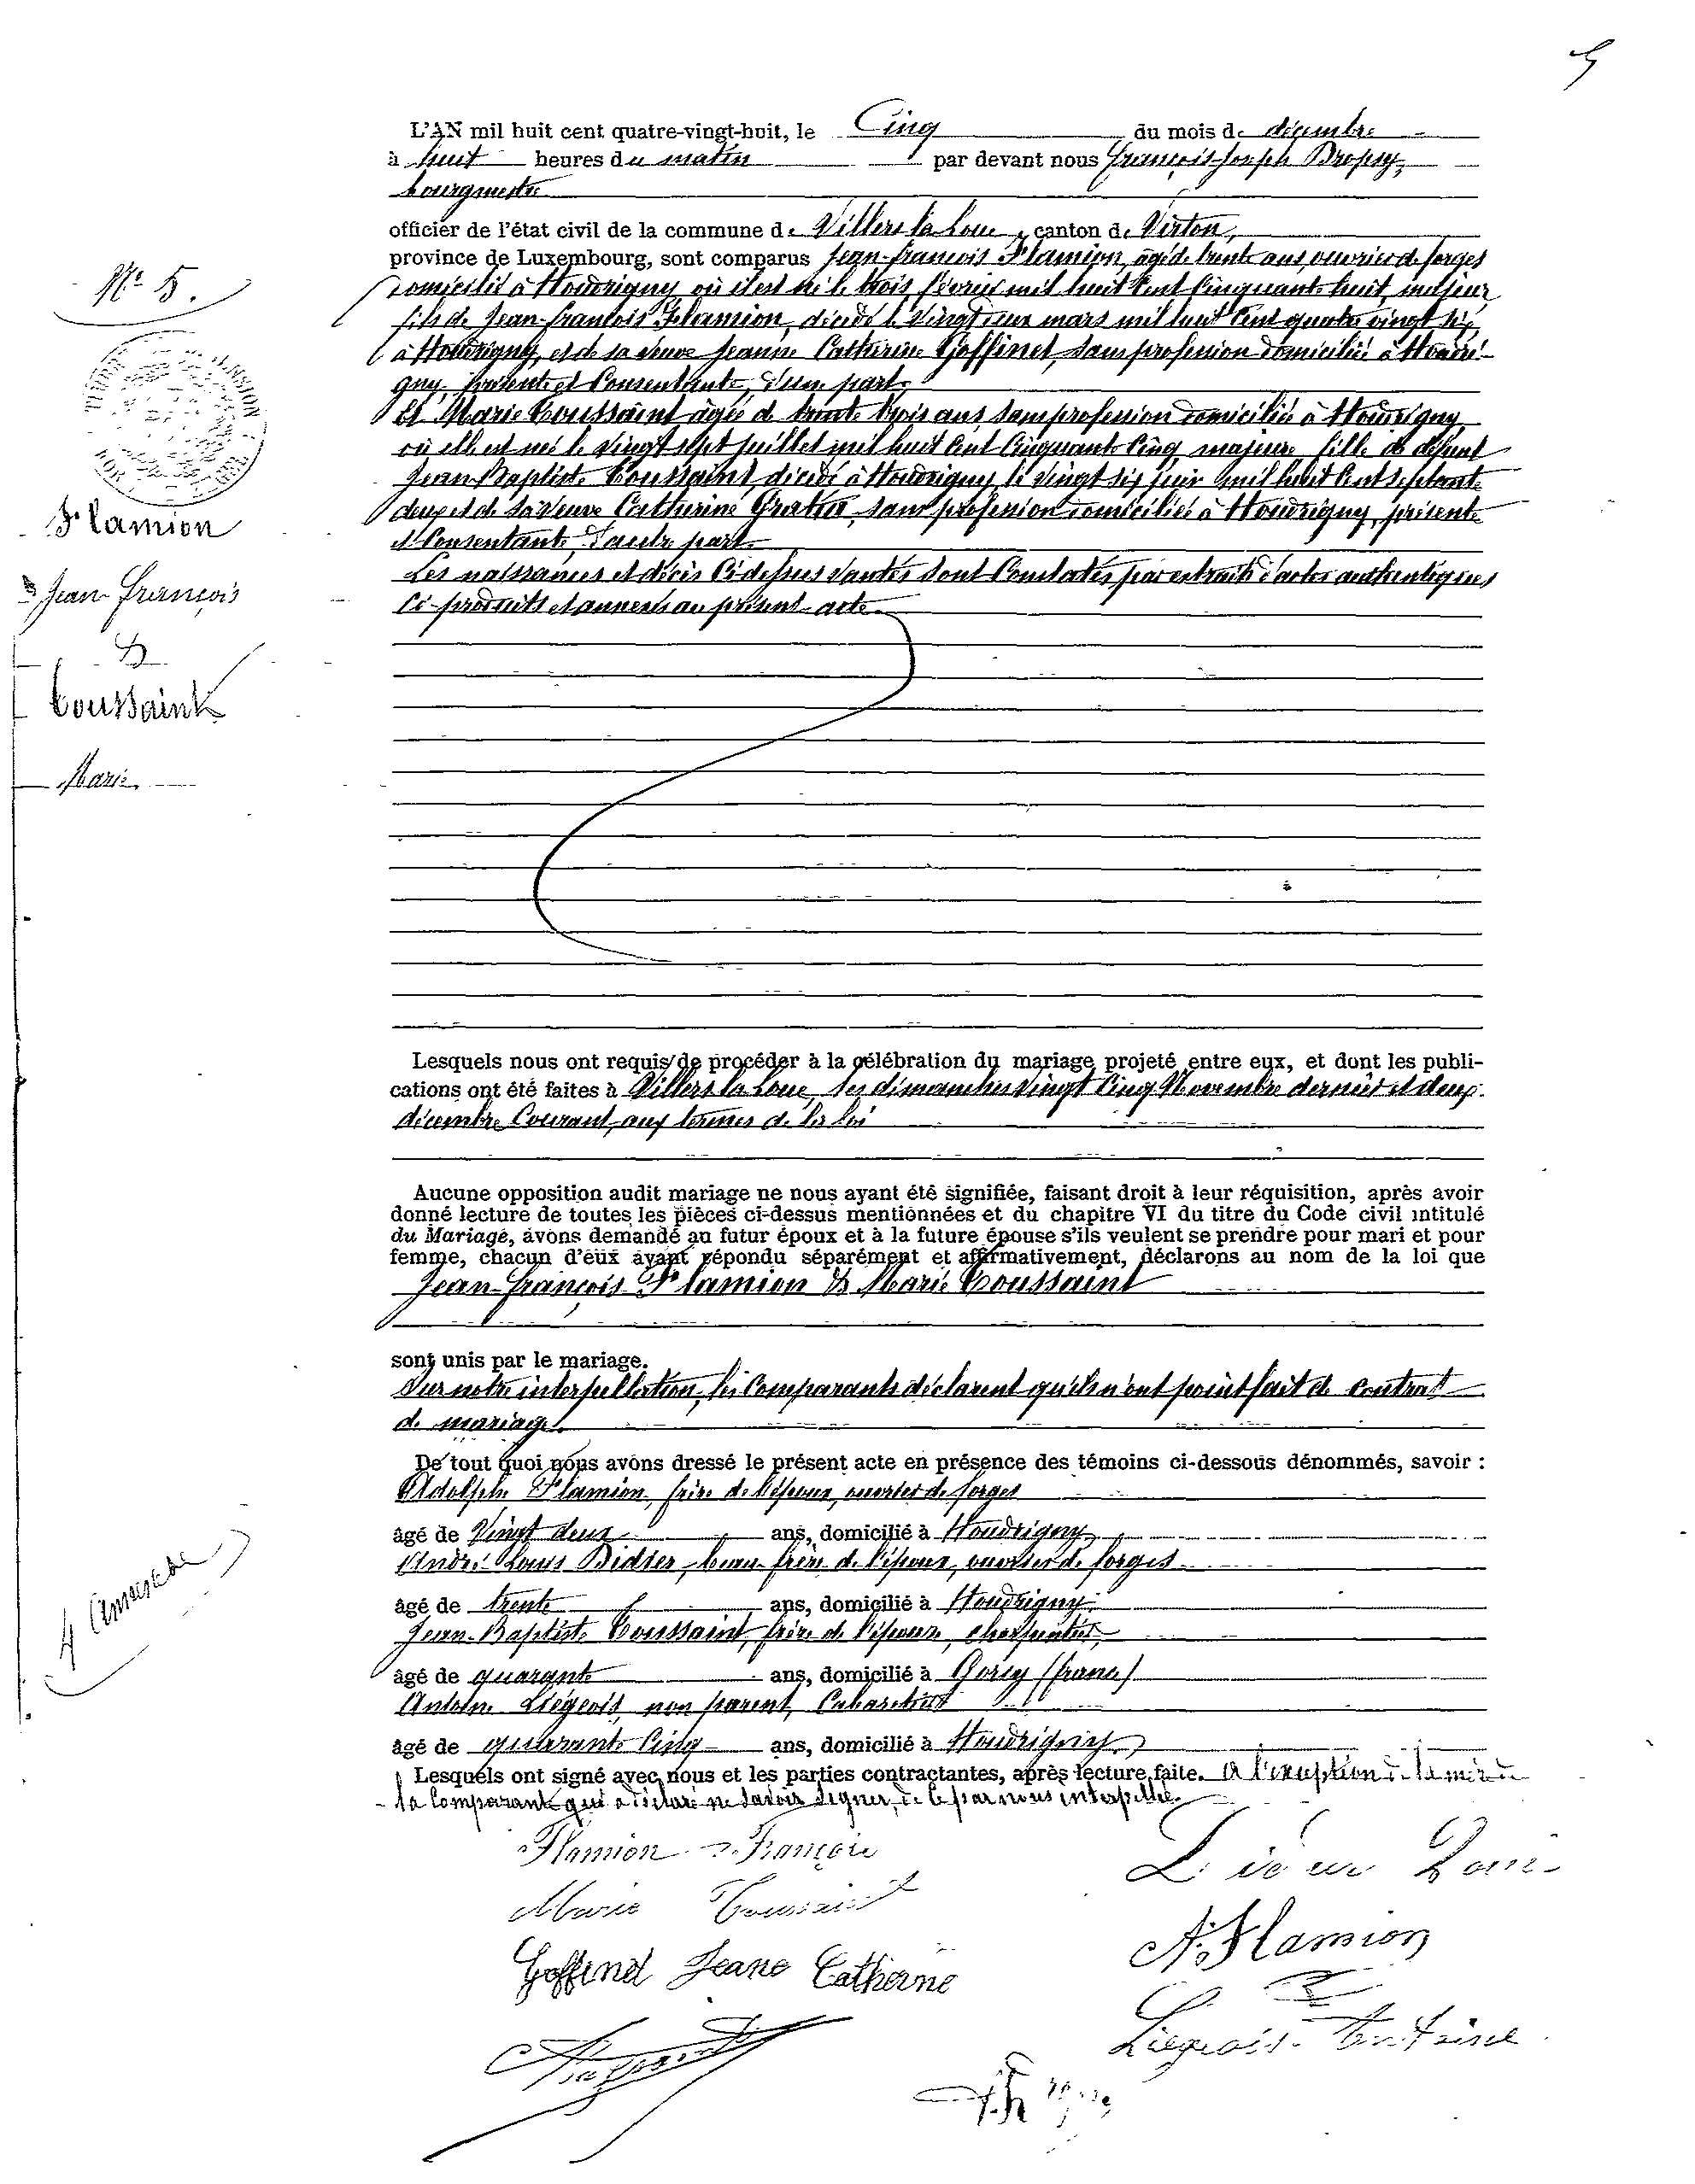 5
L'AN mil huit cent quatre-vingt-huit, le Cinq du mois de décembre
à huit heures du matin par devant nous François-Joseph Dropsy,
bourgmestre
officier de l'état civil de la commune de Villers la Loue, canton de Virton,
province de Luxembourg, sont comparus Jean-françois Flamion, âgé de trente ans, ouvrier de forges
domicilié à Houdrigny où il est né le trois février mil huit Cent Cinquante huit, majeur
fils de Jean-françois Flamion, décédé le Vingt deux mars mil huit Cent quatre vingt six
à Houdrigny, et de sa Veuve Jeanne Catherine Goffinet, Sans profession domiciliée à Houdri-
gny, présente et Consentante, d'une part,
Et Marie Toussaint âgée de trente trois ans, Sans profession domiciliée à Houdrigny
où elle est née le vingt sept juillet mil huit Cent Cinquante Cinq majeure fille de défunt
Jean-Baptiste Toussaint, décédé à Houdrigny le Vingt six juin mil huit Cent septante
deux et de Sa Veuve Catherine Sans profession domiciliée à Houdrigny, présente
et Consentante, d'autre part.
Les naissances et décès Ci-dessus Vantés Sont Constatés par extraits d'actes authentiques
Ci-produits et annexés au présent acte.
N° 5.
TIMBRE
Flamion
Jean-françois
&
Toussaint
Marie
Lesquels nous ont requis de procéder à la célébration du mariage projeté entre eux, et dont les publi-
cations ont été faites à Villers la Loue, les dimanches vingt Cinq Novembre dernier et deux
décembre Courant, aux termes de la loi
Aucune opposition audit mariage ne nous ayant été signifiée, faisant droit à leur réquisition, après avoir
donné lecture de toutes les pièces ci-dessus mentionnées et du chapitre VI du titre du Code civil intitulé
du Mariage, avons demandé au futur époux et à la future épouse s'ils veulent se prendre pour mari et pour
femme, chacun d'eux ayant répondu séparément et affirmativement, déclarons au nom de la loi que
Jean-françois Flamion & Marie Toussaint
sont unis par le mariage.
Sur notre interpellation, les Comparants déclarent qu'ils n'ont point fait de contrat
de mariage.
De tout quoi nous avons dressé le présent acte en présence des témoins ci-dessous dénommés, savoir :
Adolphe Flamion, frère de l'époux, ouvrier de forges
âgé de Vingt deux ans, domicilié à Houdrigny
André-Louis Didier, beau-frère de l'époux, ouvrier de forges
âgé de trente ans, domicilié à Houdrigny
Jean-Baptiste Toussaint, frère de l'épouse, charpentier,
âgé de quarante ans, domicilié à Gorcy (france)
Antoine Liégeois, non parent, Cabaretier
âgé de quarante Cinq ans, domicilié à Houdrigny
4 Annexes
Lesquels ont signé avec nous et les parties contractantes, après lecture faite. A l'exception de la mère de
la Comparante qui a déclaré ne Savoir Signer, de ce par nous interpellée.
Flamion J. François
Marie Toussaint
Goffinet Jeane Catherine
A. Flamion
Liégeois Antoine